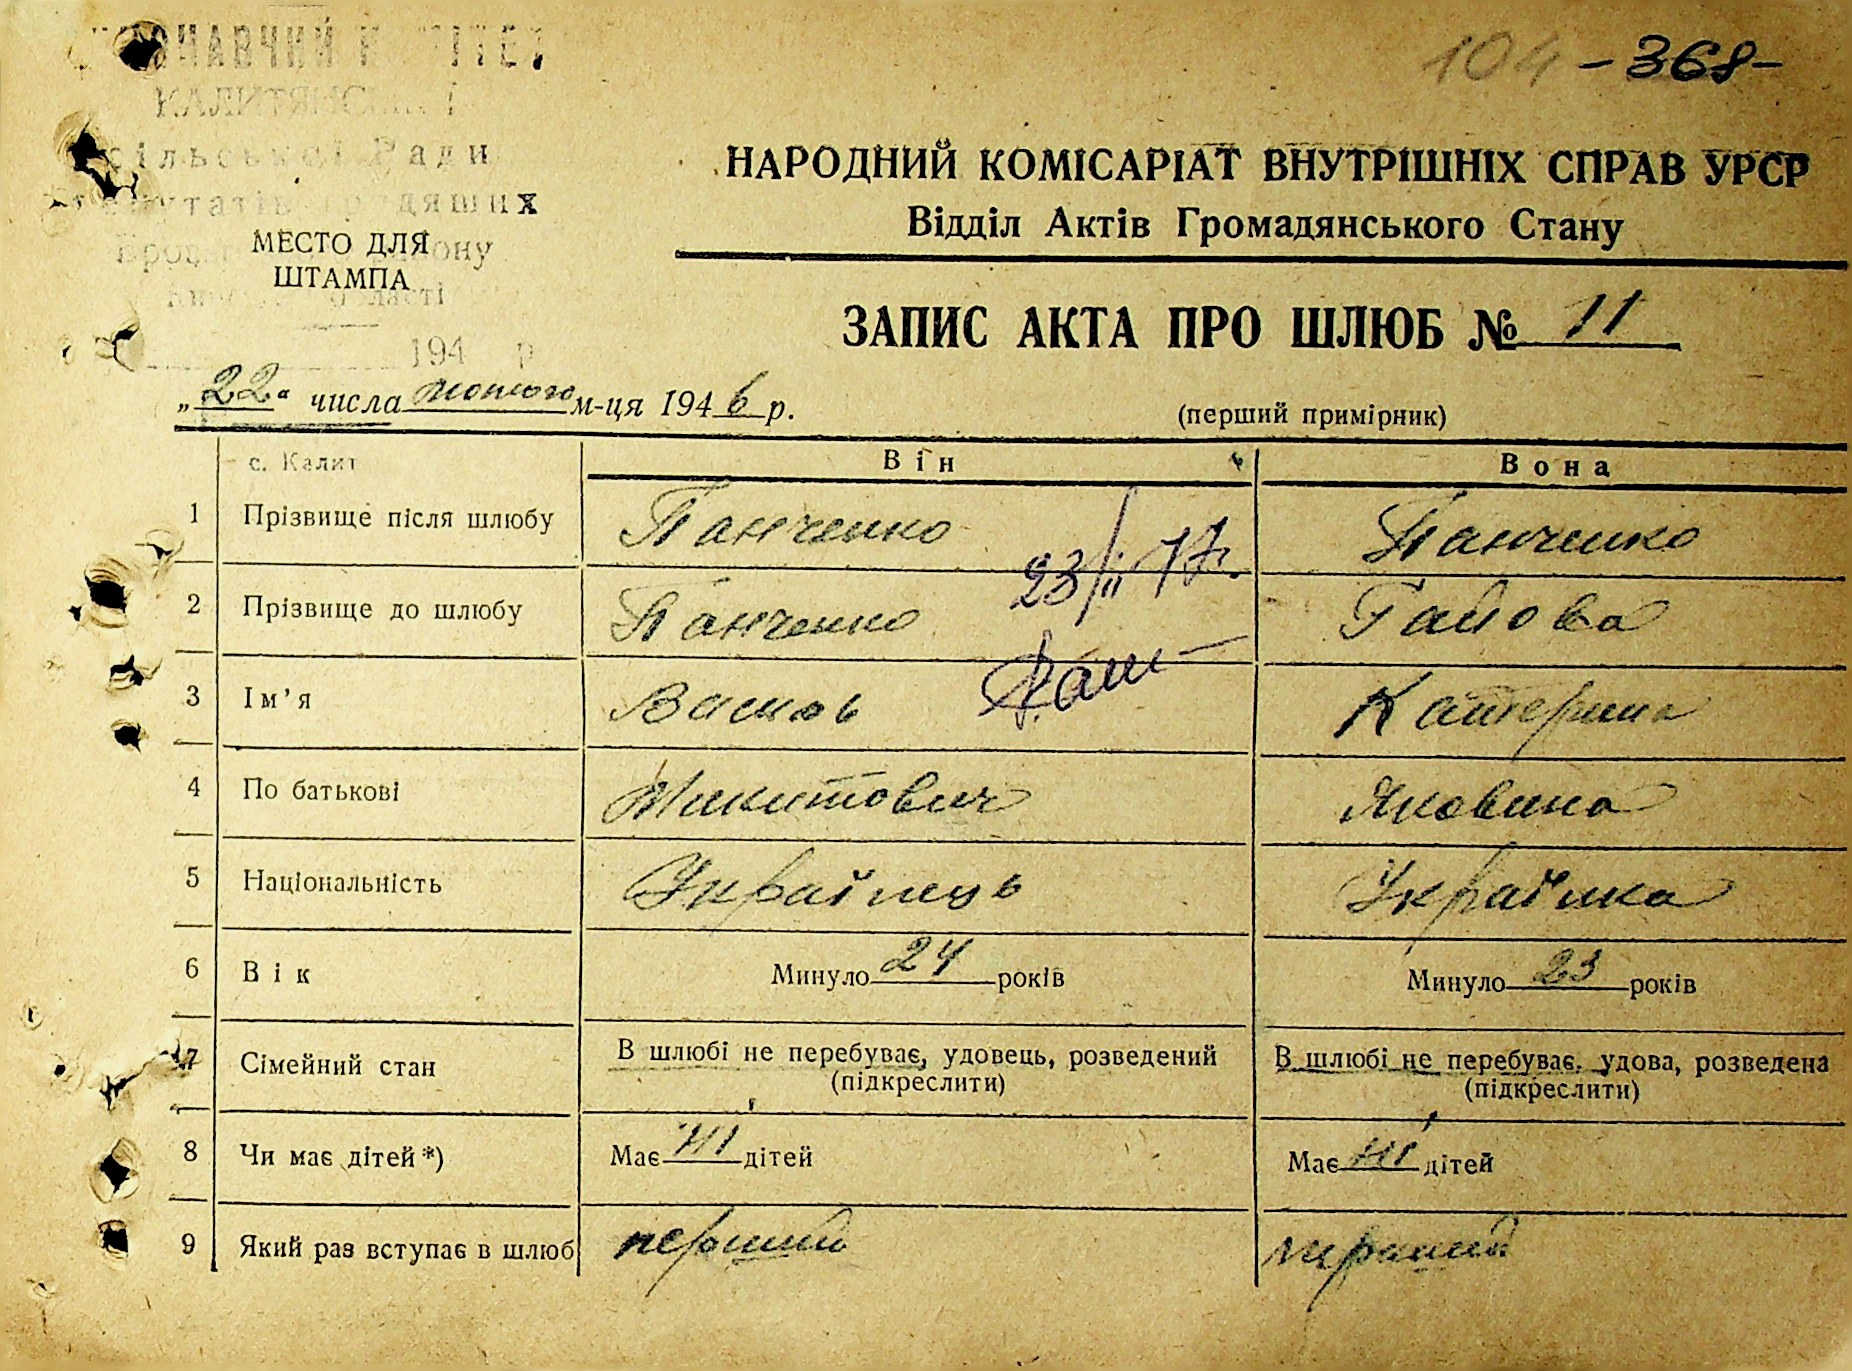 104 - 368 -
КАЛИТЯНС
сільської Ради
депутатів трудящих
НАРОДНИЙ КОМІСАРІАТ ВНУТРІШНІХ СПРАВ УРСР
Відділ Актів Громадянського Стану
МЕСТО ДЛЯ
ШТАМПА
області
194 р
ЗАПИС АКТА ПРО ШЛЮБ № 11
„22“ числа лютого м-ця 1946 р.
(перший примірник)
с. Калит
Він Вона
1 Прізвище після шлюбу Панченко Панченко
23/ІІ
2 Прізвище до шлюбу Панченко Гайова
3 Ім’я Василь Катерина
4 По батькові Микитович Яковина
5 Національність Українець Українка
6 Вік Минуло 24 років Минуло 23 років
7 Сімейний стан В шлюбі не перебуває, удовець, розведений В шлюбі не перебуває, удова, розведена
(підкреслити) (підкреслити)
8 Чи має дітей*) Має ні дітей Має ні дітей
9 Який раз вступає в шлюб перший перший